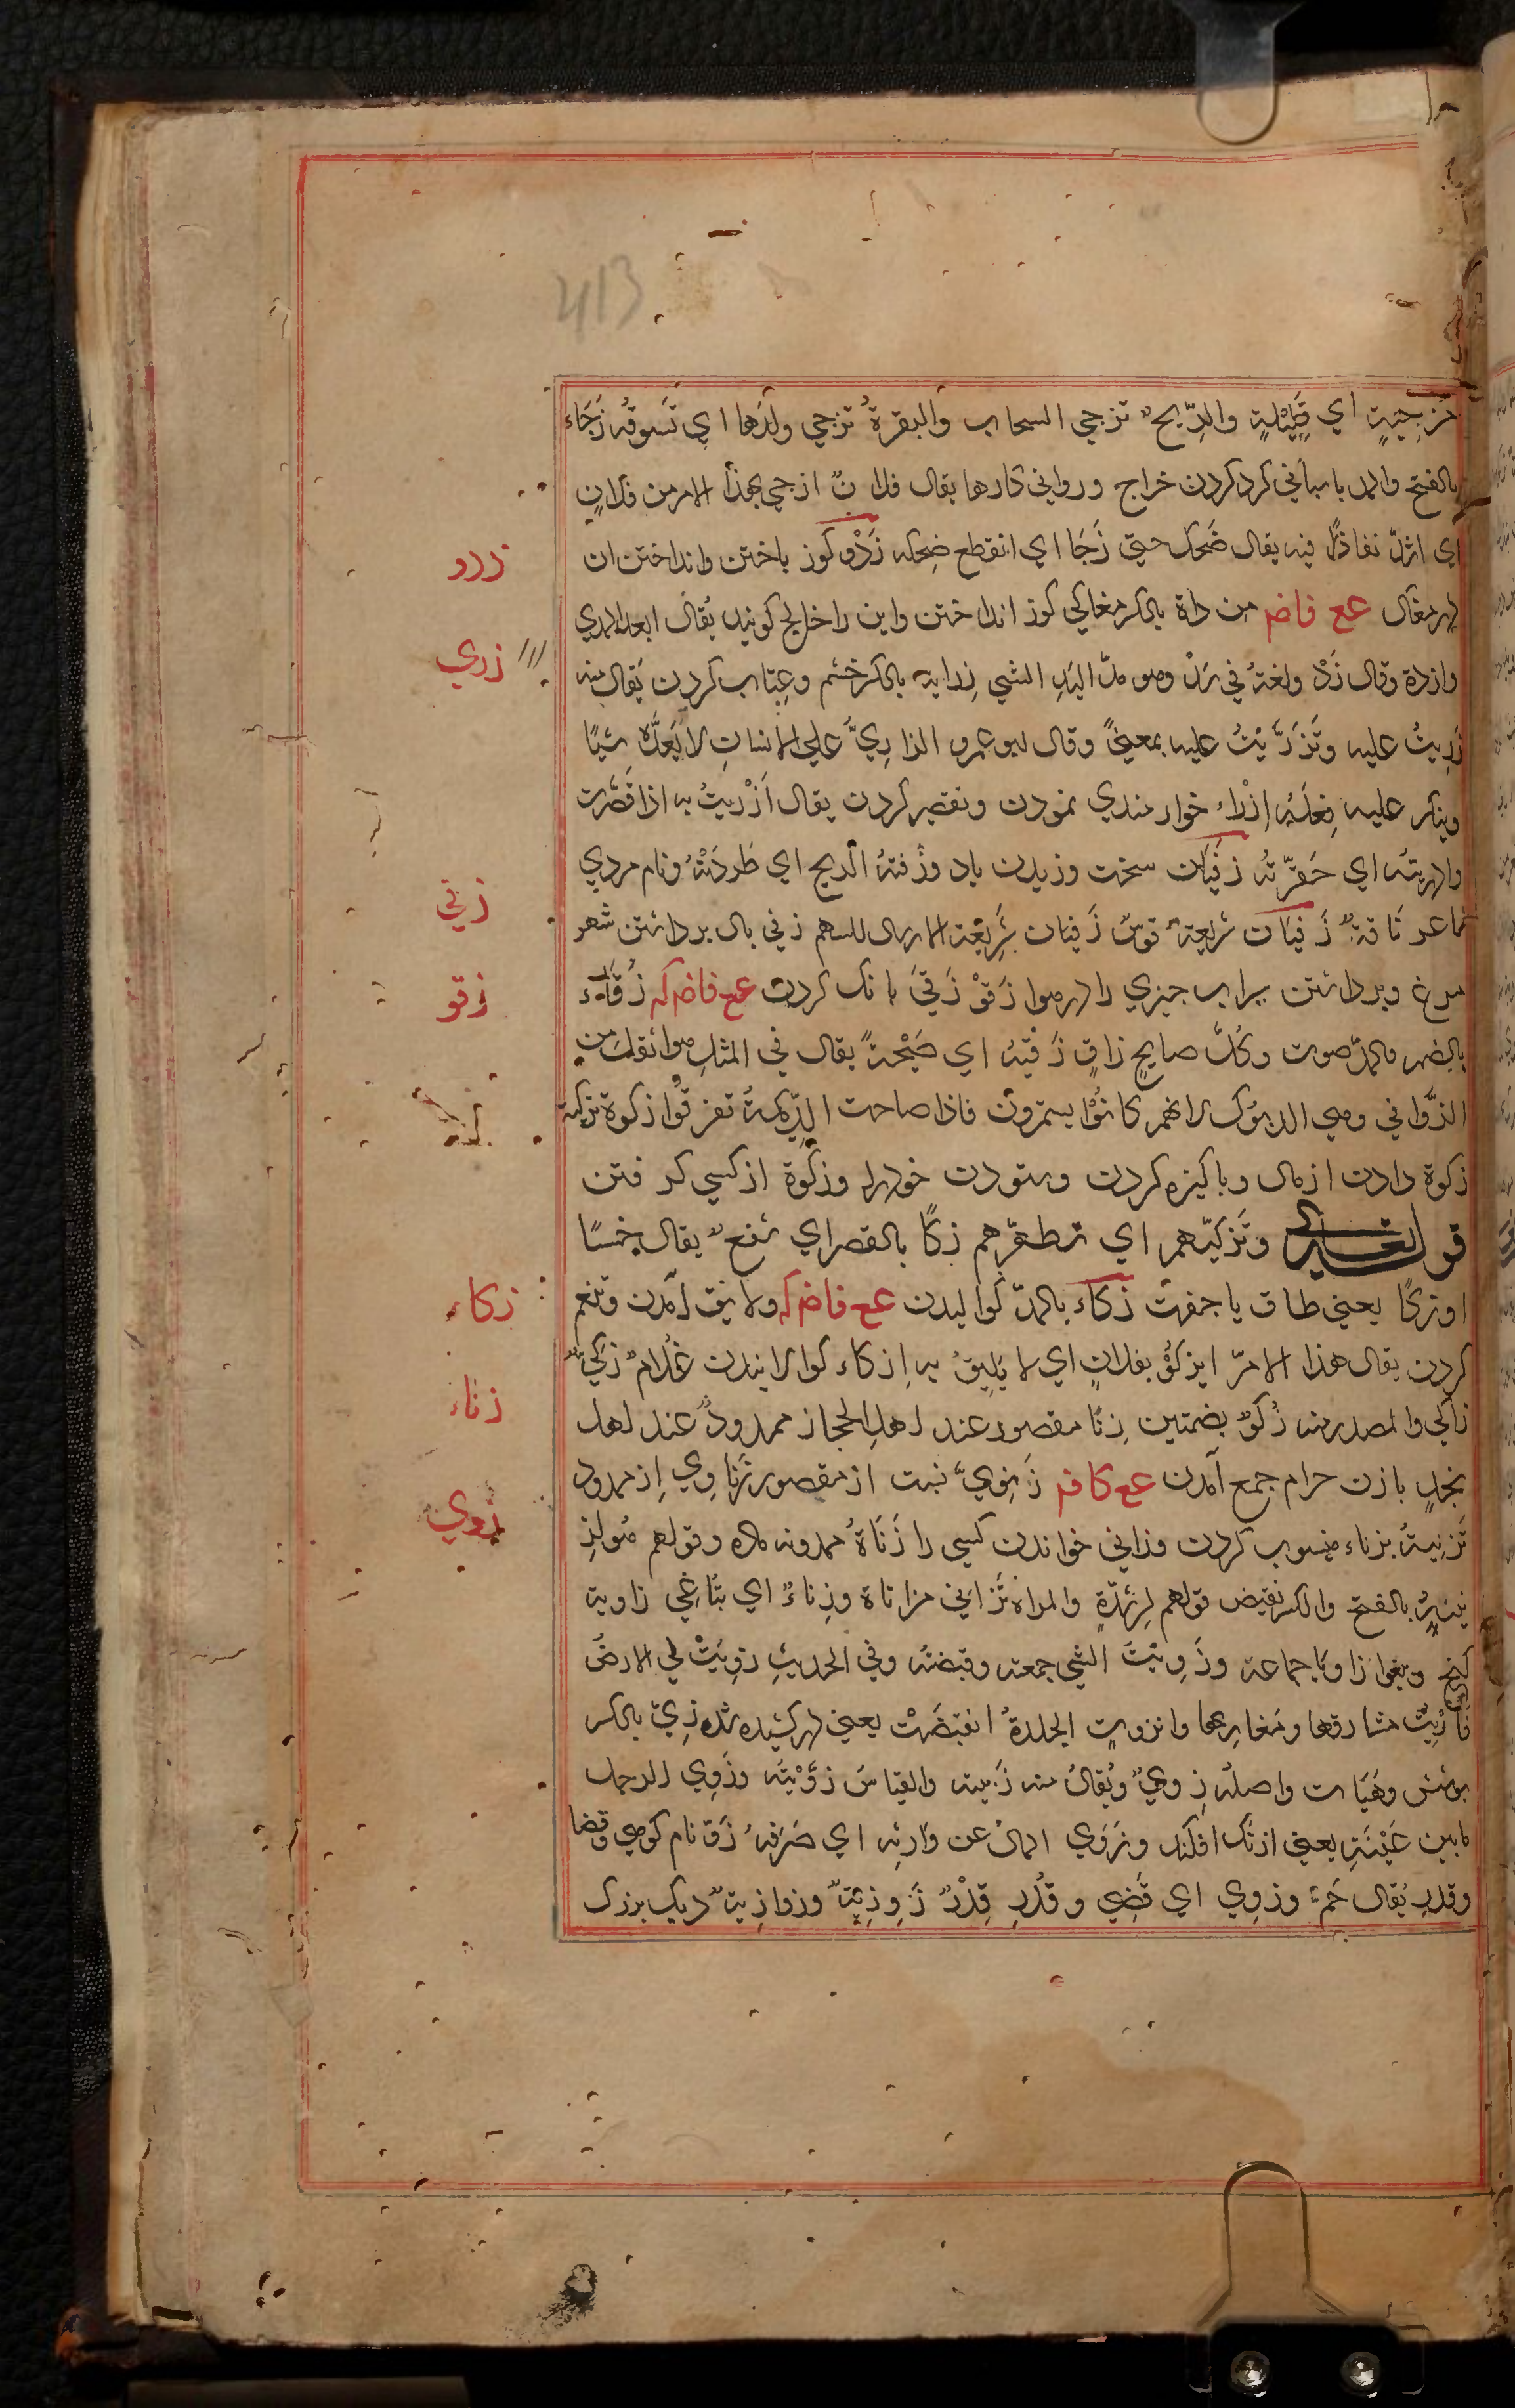 413
مزجيةٍ اي قَلِيْلةٍ والرِّيحُ تزجي السحاب والبقرةُ تزجي ولدَها اي تَسوقُه زَجَاء
بالفتح والمد باسانى كرد كردن خراج وروانى كارها يقال فلانٌ ازجي بهذا الامر من فلانٍ
اي اشدّ نفاذًا فيه يقال ضَحِكَ حتى زَجَا اي انقطع ضِحكه زَدْو كوز باختن وانداختن ان
زدو
در مغاك عع فاضم من داة بالكسر مغاكى كوز انداختن واين را خاليج كويند يُقال ابعد المدي
زري
وازده وقال زَدْ ولغةٌ في سَدْ وهو مدّ اليد الي الشي زراية بالكسر خشم وعِتاب كردن يُقال منه
زَرِيتُ عليه وتَزَرَّيْتُ عليه بمعنىً وقال ابو عمرو الزارِيّ علي الانسان لا يَعدُّه شيًا
وينكر عليه فِعلَهُ اِزْراء خوار مندي نمودن وتقصير كردن يقال اَزْرَيتُ به اذا قَصَّرت
وازريته اي حَقّرتُه زَفَيَان سخت وزيدن باد وزَفتهُ الريح اي طَردَتْهُ ونام مردي
زفي
شاعر نَاقةٌ زَفَيَان سَريعةٌ قوسٌ زَفَيان سَرِيْعَة الارسال للسهم زفي بال برداشتن شعر
مرغ وبرداشتن سراب چيزي را در هوا زَقْوْ زَقيَ بانك كردن عع فاضم كه زُقَاء
زقو
بالضم والمدّ صوت وكُلّ صايحٍ زاقٍ زَقْيَةُ اي صَيْحةً يقال في المثل هو اثقل من
الزَّواقي وهي الديوك لانهم كانُوْا يسمرون فاذا صاحت الدِّيَكةُ تفرقوا زكوة تزكية
زكوة دادن از مال وپاكيزه كردن وستودن خود را وزكوة از كسي كرفتن
قوله تعالى وتُزكّيهم اي تطهّرهم زكًا بالقصر اي شفعٌ يقال خَسًا
اوزكًا يعنى طاق يا جفت زَكَاء بالمدّ كواليدن عع فاضم كه ولايق آمدن وتنعم
زكاء
كردن يقال هذا الامرّ لا يزكُوْ بفلانٍ اي لا يَليقُ به اِزكاء كوالانيدن غُلامٌ زَكيٌّ
زاكي والمصدر منه زُكوّ بضمتين زِنًا مقصور عند اهل الحجاز ممدودٌ عند اهل
زناء
نجدٍ با زن حرام جمع آمدن عع كافم زَنَوِيّ نسبت از مقصور زِنَاوِي از ممدود
تَزنِيةُ بزناء منسوب كردن وزاني خواندن كسي را زَنَاةُ حمدونه ماده وقولهم هُو لِزِ
زوي
نيةٍ بالفتح والكسر نقيض قولهم لِرَشدةٍ والمراة تُزاني مزاناة وزِناءٌ اي تُبَاغِي زاوية
كنج وبيغوله زاويا جماعة وزَوَيْتُ الشي جمعته وقبضته وفي الحديث زوِيَتْ لي الارضُ
فارُيِتُ مشارقها ومَغارِبها وانزوت الجلدةُ انقبضَتْ يعنى در كشيده شده زِيّ بالكسر
پوشش وهَيَات واصله زِوْيٌ ويُقالُ منه زَييته والقياسُ زوّيْتَه وزَوي الرجل
مابين عَيْنَيهِ يعنى ازنك افكند وزَوَي المالُ عن وَارِثه اي صَرَفهُ زَوّ نام كوهي وقضا
وقدر يُقال حُمّ وزوِي اي قضِي وقُدِر قِدْرٌ زَوِزِيَةٌ وزوازِيةٌ ديك بزرك